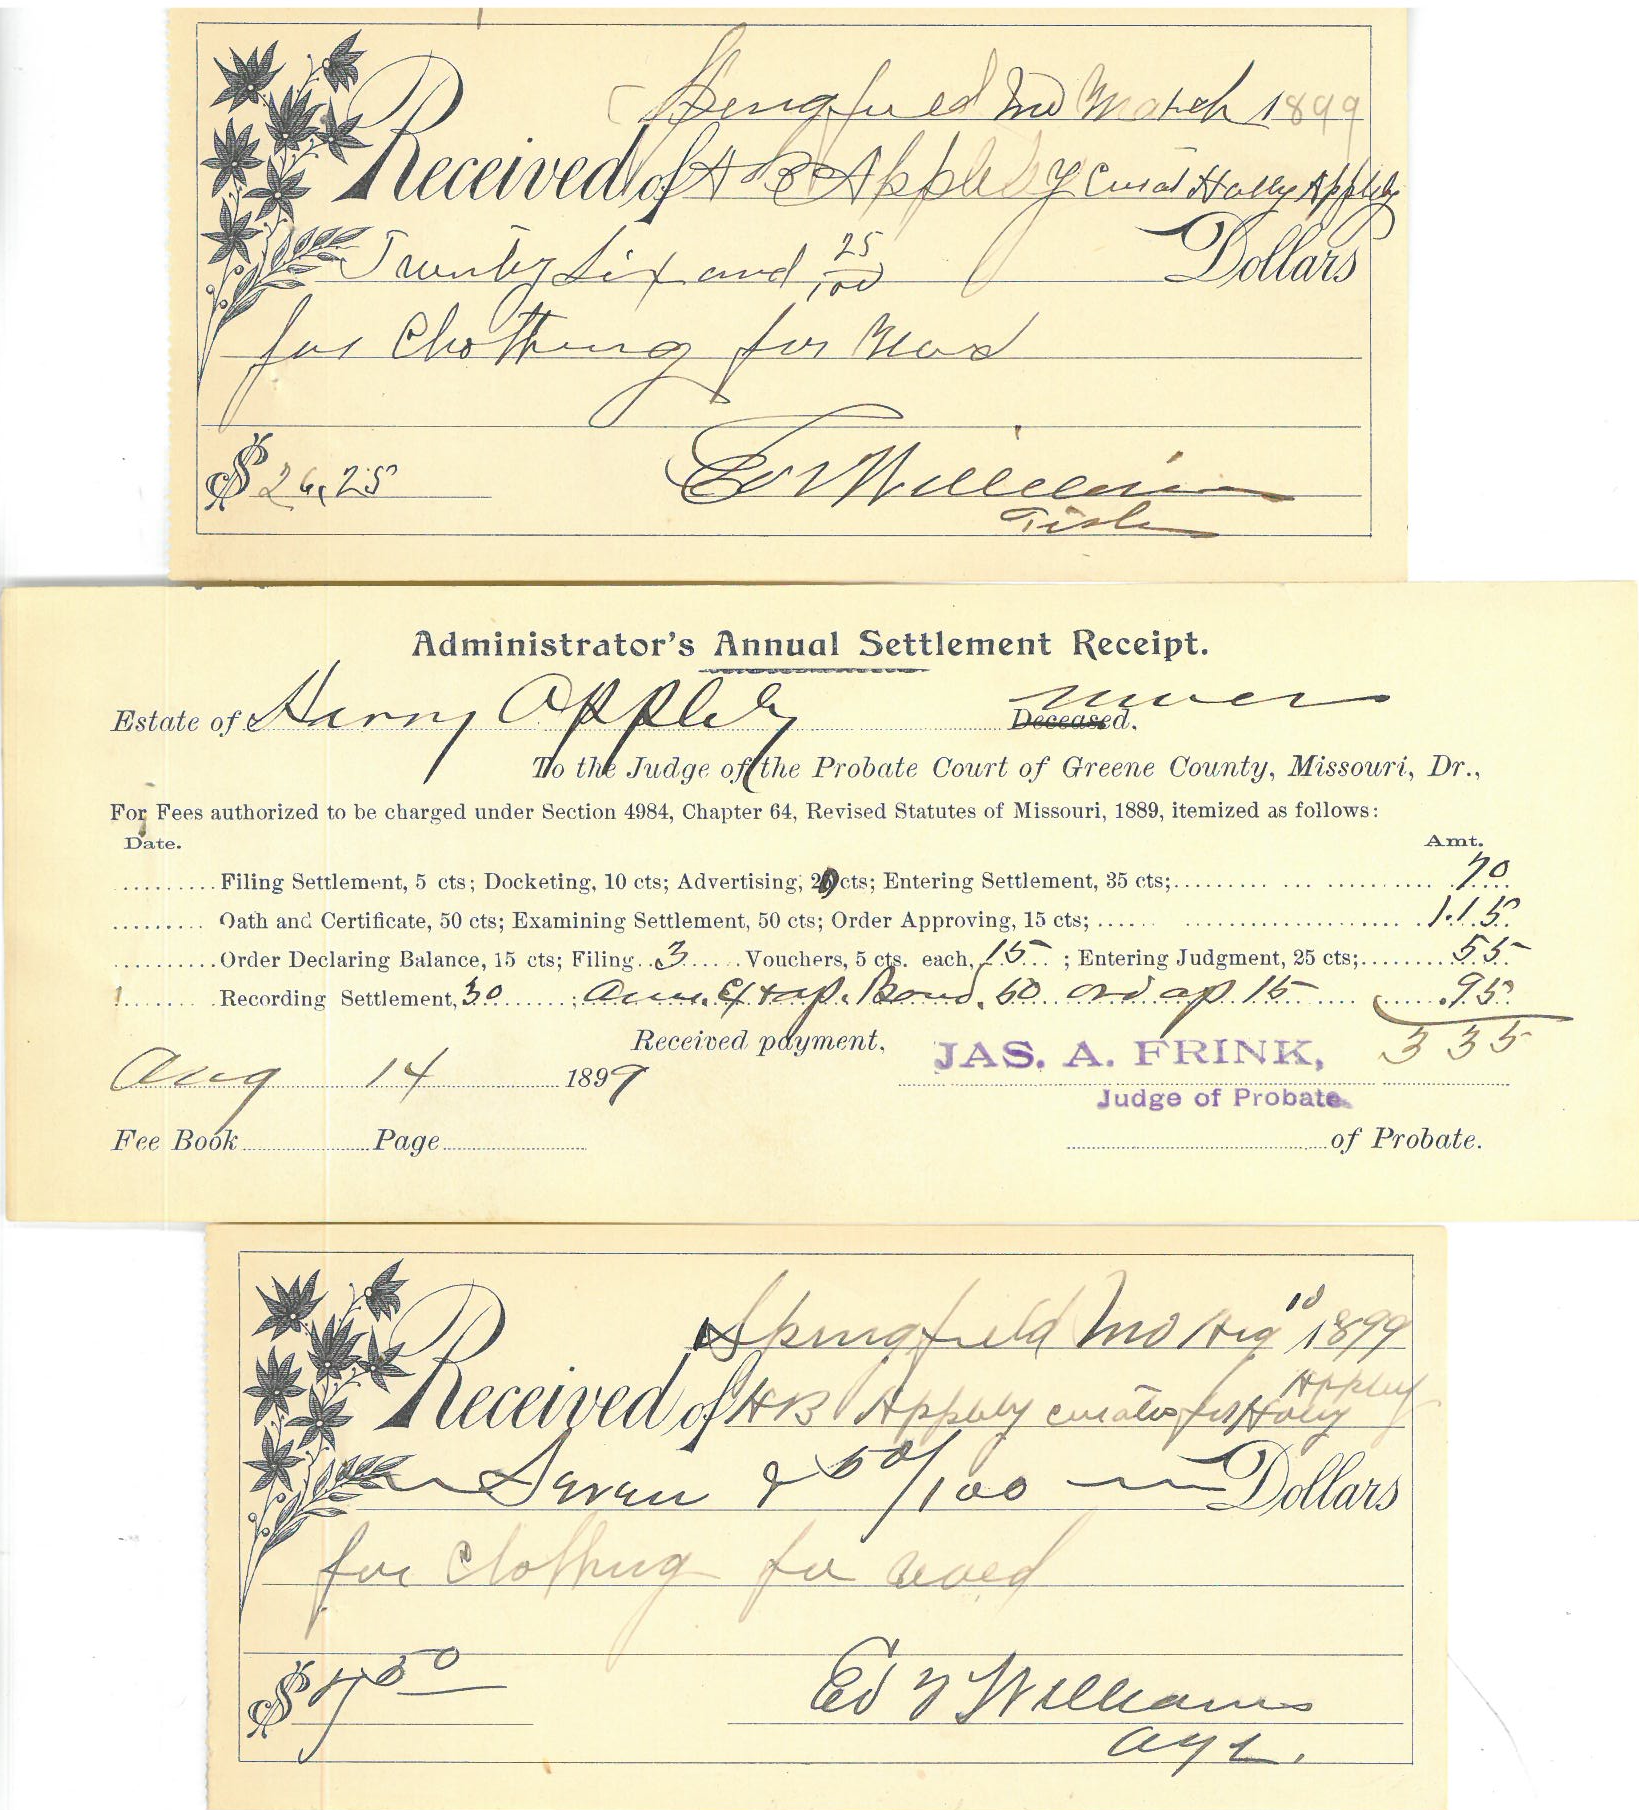 Springfield Mo March 1899
Received of H B Appleby Curat Harry Appleby
Twenty Six and 25/100 Dollars
for Clothing for
$ 26.25 Ed V Williams
Administrator's Annual Settlement Receipt.
Estate of Harry Appleby Deceased. minor
To the Judge of the Probate Court of Greene County, Missouri, Dr.,
For Fees authorized to be charged under Section 4984, Chapter 64, Revised Statutes of Missouri, 1889, itemized as follows:
Date. Amt.
Filing Settlement, 5 cts; Docketing, 10 cts; Advertising, 20 cts; Entering Settlement, 35 cts; 70
Oath and Certificate, 50 cts; Examining Settlement, 50 cts; Order Approving, 15 cts; 1.15
Order Declaring Balance, 15 cts; Filing 3 Vouchers, 5 cts. each, 15 ; Entering Judgment, 25 cts; 55
Recording Settlement, 30 ; Ann. Ex & ap. Bond, 50 ord ap 15 .95
3 35
Received payment,
JAS. A. FRINK,
Aug 14 1899
Judge of Probate.
Fee Book Page of Probate.
Springfield Mo Aug 10 1899
Received of H B Appleby curator for Harry Appleby
Seven & 50/100 Dollars
for Clothing for ward
$ 7 50 Ed V Williams